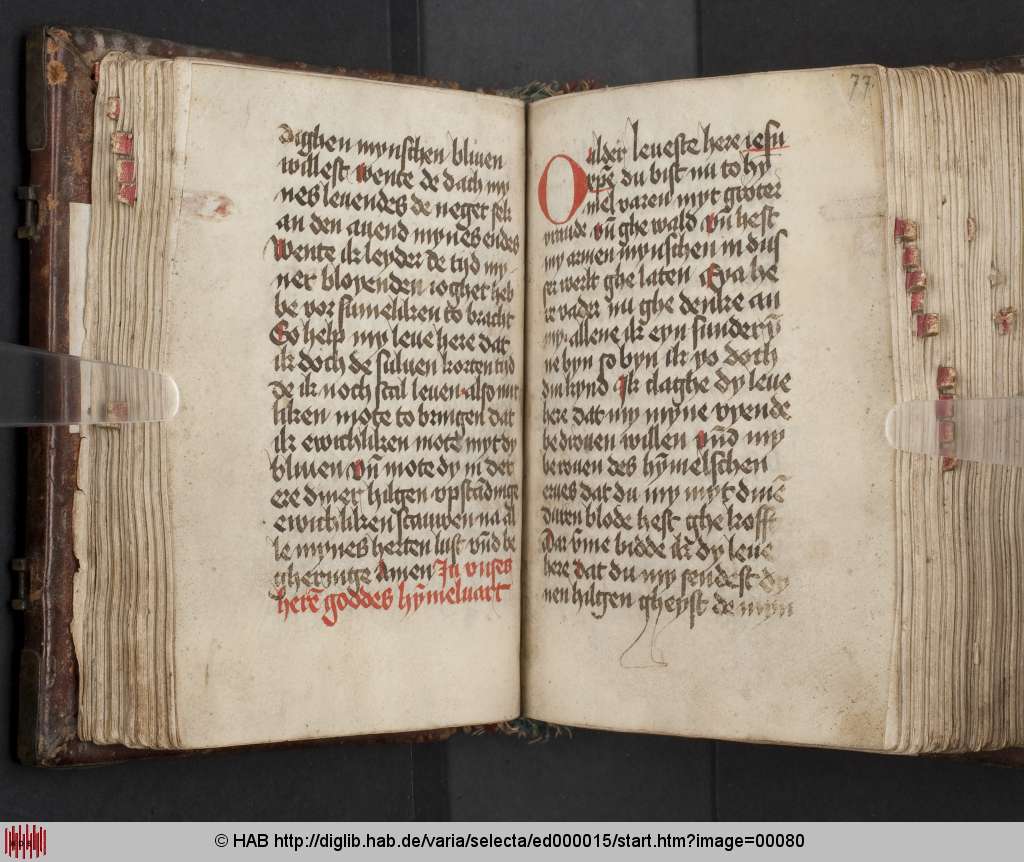 dighen mynschen bliuen
willest wente de dach my
nes leuendes de neget sek
an den auend mynes endes
Wente ik leyder de tyd my
ner bloyenden ioghet heb
be vor sumeliken to bracht
So help my leue here dat
ik doch de suluen korten tyd
de ik noch scal leuen also nut
liken mote to bringen dat
ik ewichliken mote myt dy
bliuen vn̄ mote dy in der
ere diner hilgen vpstādinge
ewichliken scauwen na al
le mynes herten lust vn̄d be
gheringe Amen In vnses
herē goddes hȳmeluart
77
O ulder leueste here iesu
du bist nu to hy
mel varen myt groter
vraude vn̄ ghe wald vn̄ hest
my armen mynschen in dus
ser werlt ghe laten Eya he
re vader nu ghe denke an
my allene ik eyn sunder ȳ
ne byn so byn ik yo doch
din kynd Ik claghe dy leue
here dat my myne vyende
bedrouen willen vn̄d my
berouen des hȳmelschen
erues dat du my myt dinē
duren blode hest ghe kofft
Dar vm̄e bidde ik dy leue
here dat du my sendest dy
nen hilgen gheyst de myn
© HAB http://diglib.hab.de/varia/selecta/ed000015/start.htm?image=00080